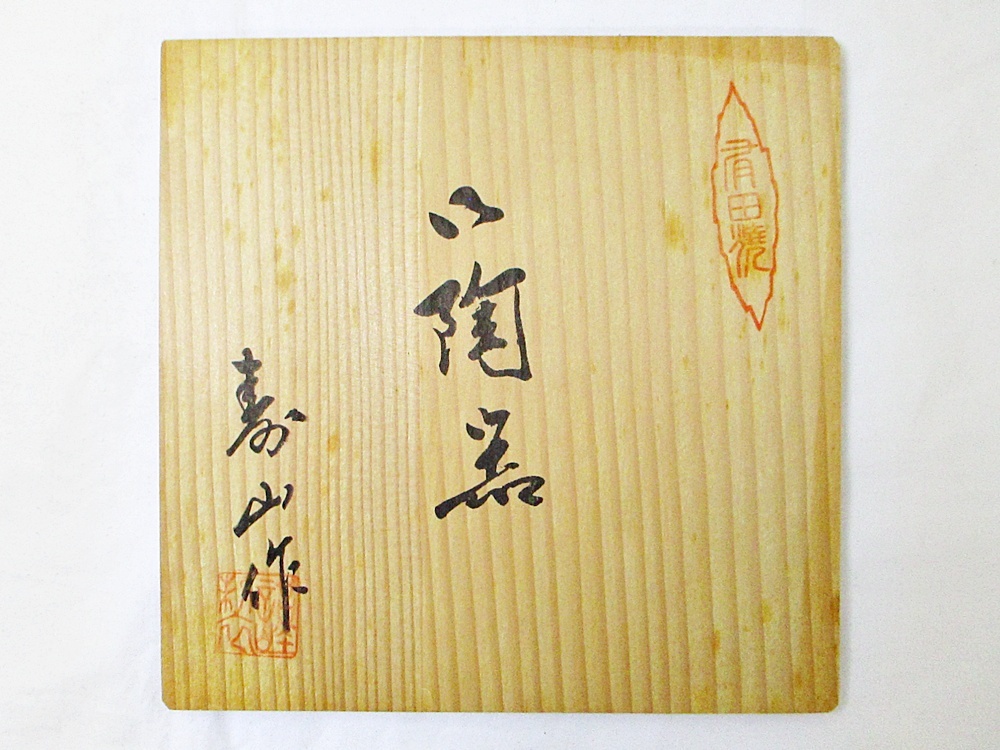 有田焼
御陶器
寿山作